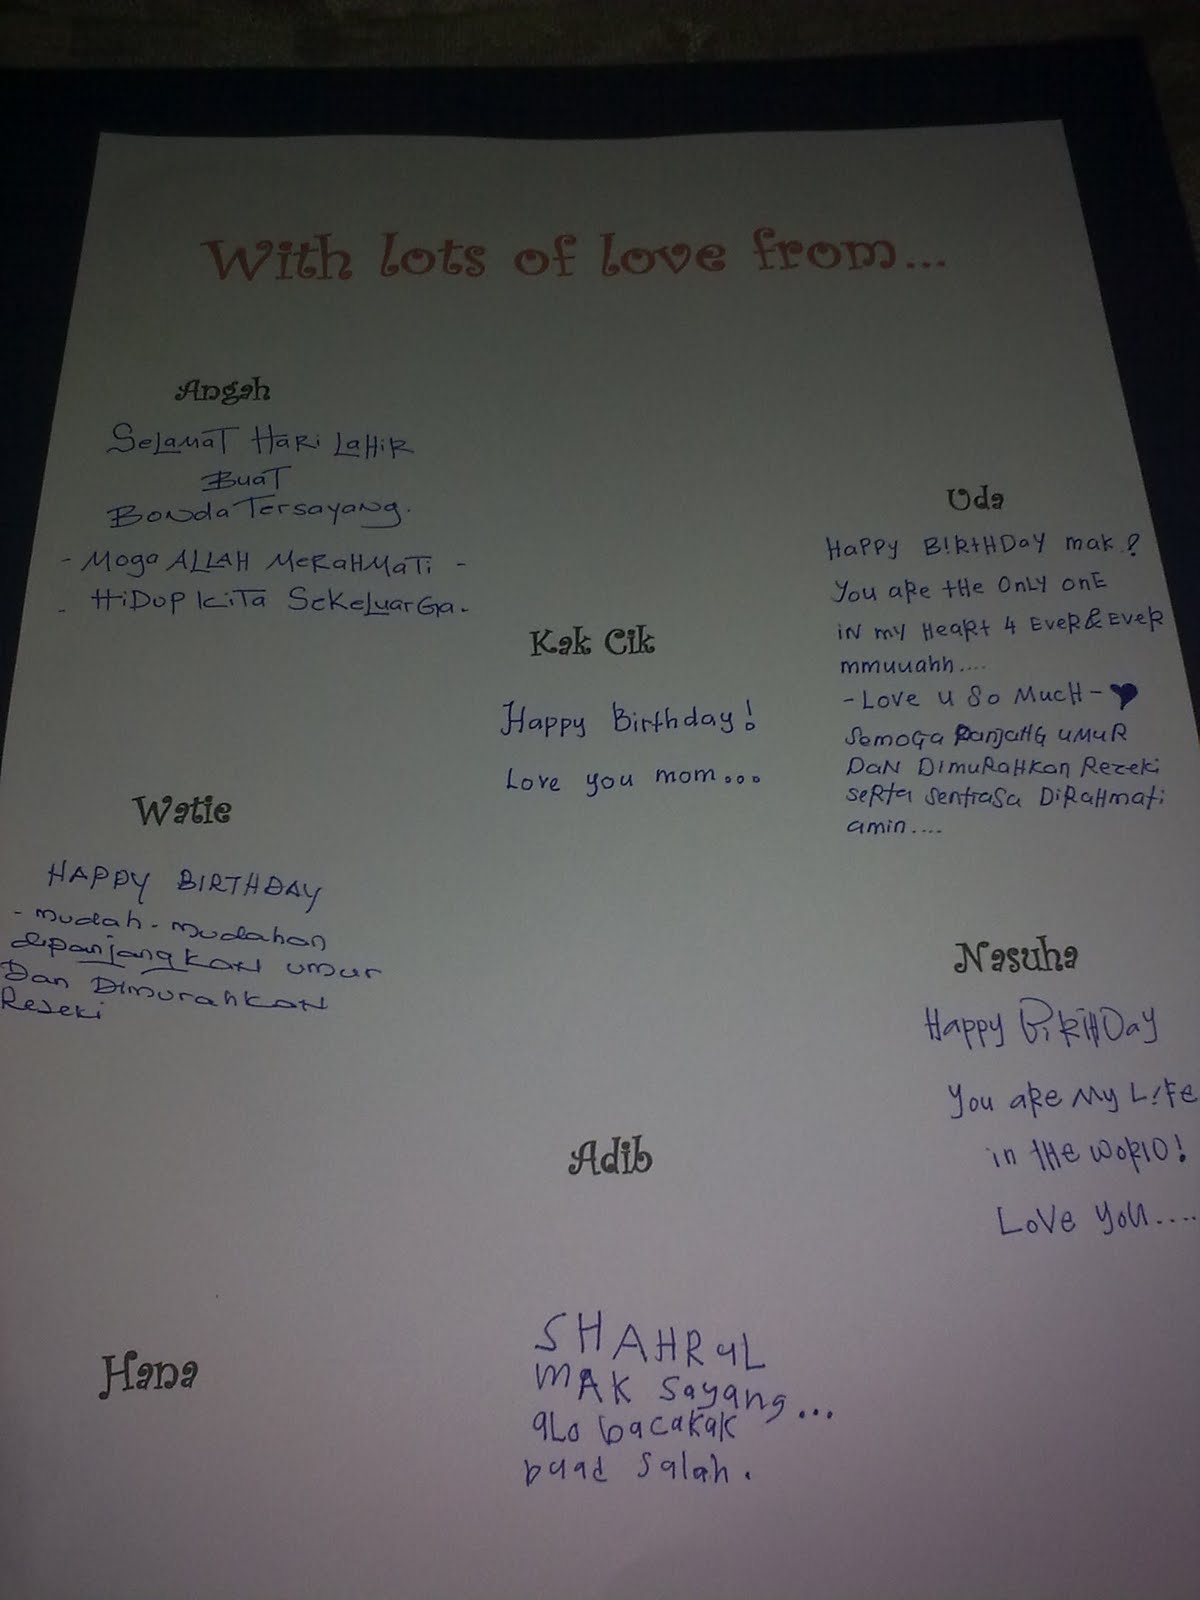 With lots of love from...
Angah
SeLaMaT HaRi LaHiR
BuaT
BondaTersayang.
- Moga ALLAH MeRaHMaTi -
. HiDup KiTa SeKeLuarGa.
Uda
HaPPy BIRtHDay mak!
You aRe tHe OnLy onE
iN my Heart 4 EveR&EveR
mmuuahh....
-Love u So MucH- ♥
SemoGa PanjanG uMuR
DaN DImuRaHKan Rezeki
seRta SentiaSa DiRaHmati
amin....
Kak Cik
Happy Birthday!
Love you mom...
Watie
HAPPY BIRTHDAY
- mudah-mudahan
dipanjangkan umur
Dan Dimurahkan
Rezeki
Nasuha
Happy BiRtHDay
You aRe My LiFe
in tHe woRlD!
LoVe you....
Adib
SHAHRuL
mAK Sayang...
aLo bacaKaK
buad Salah.
Hana